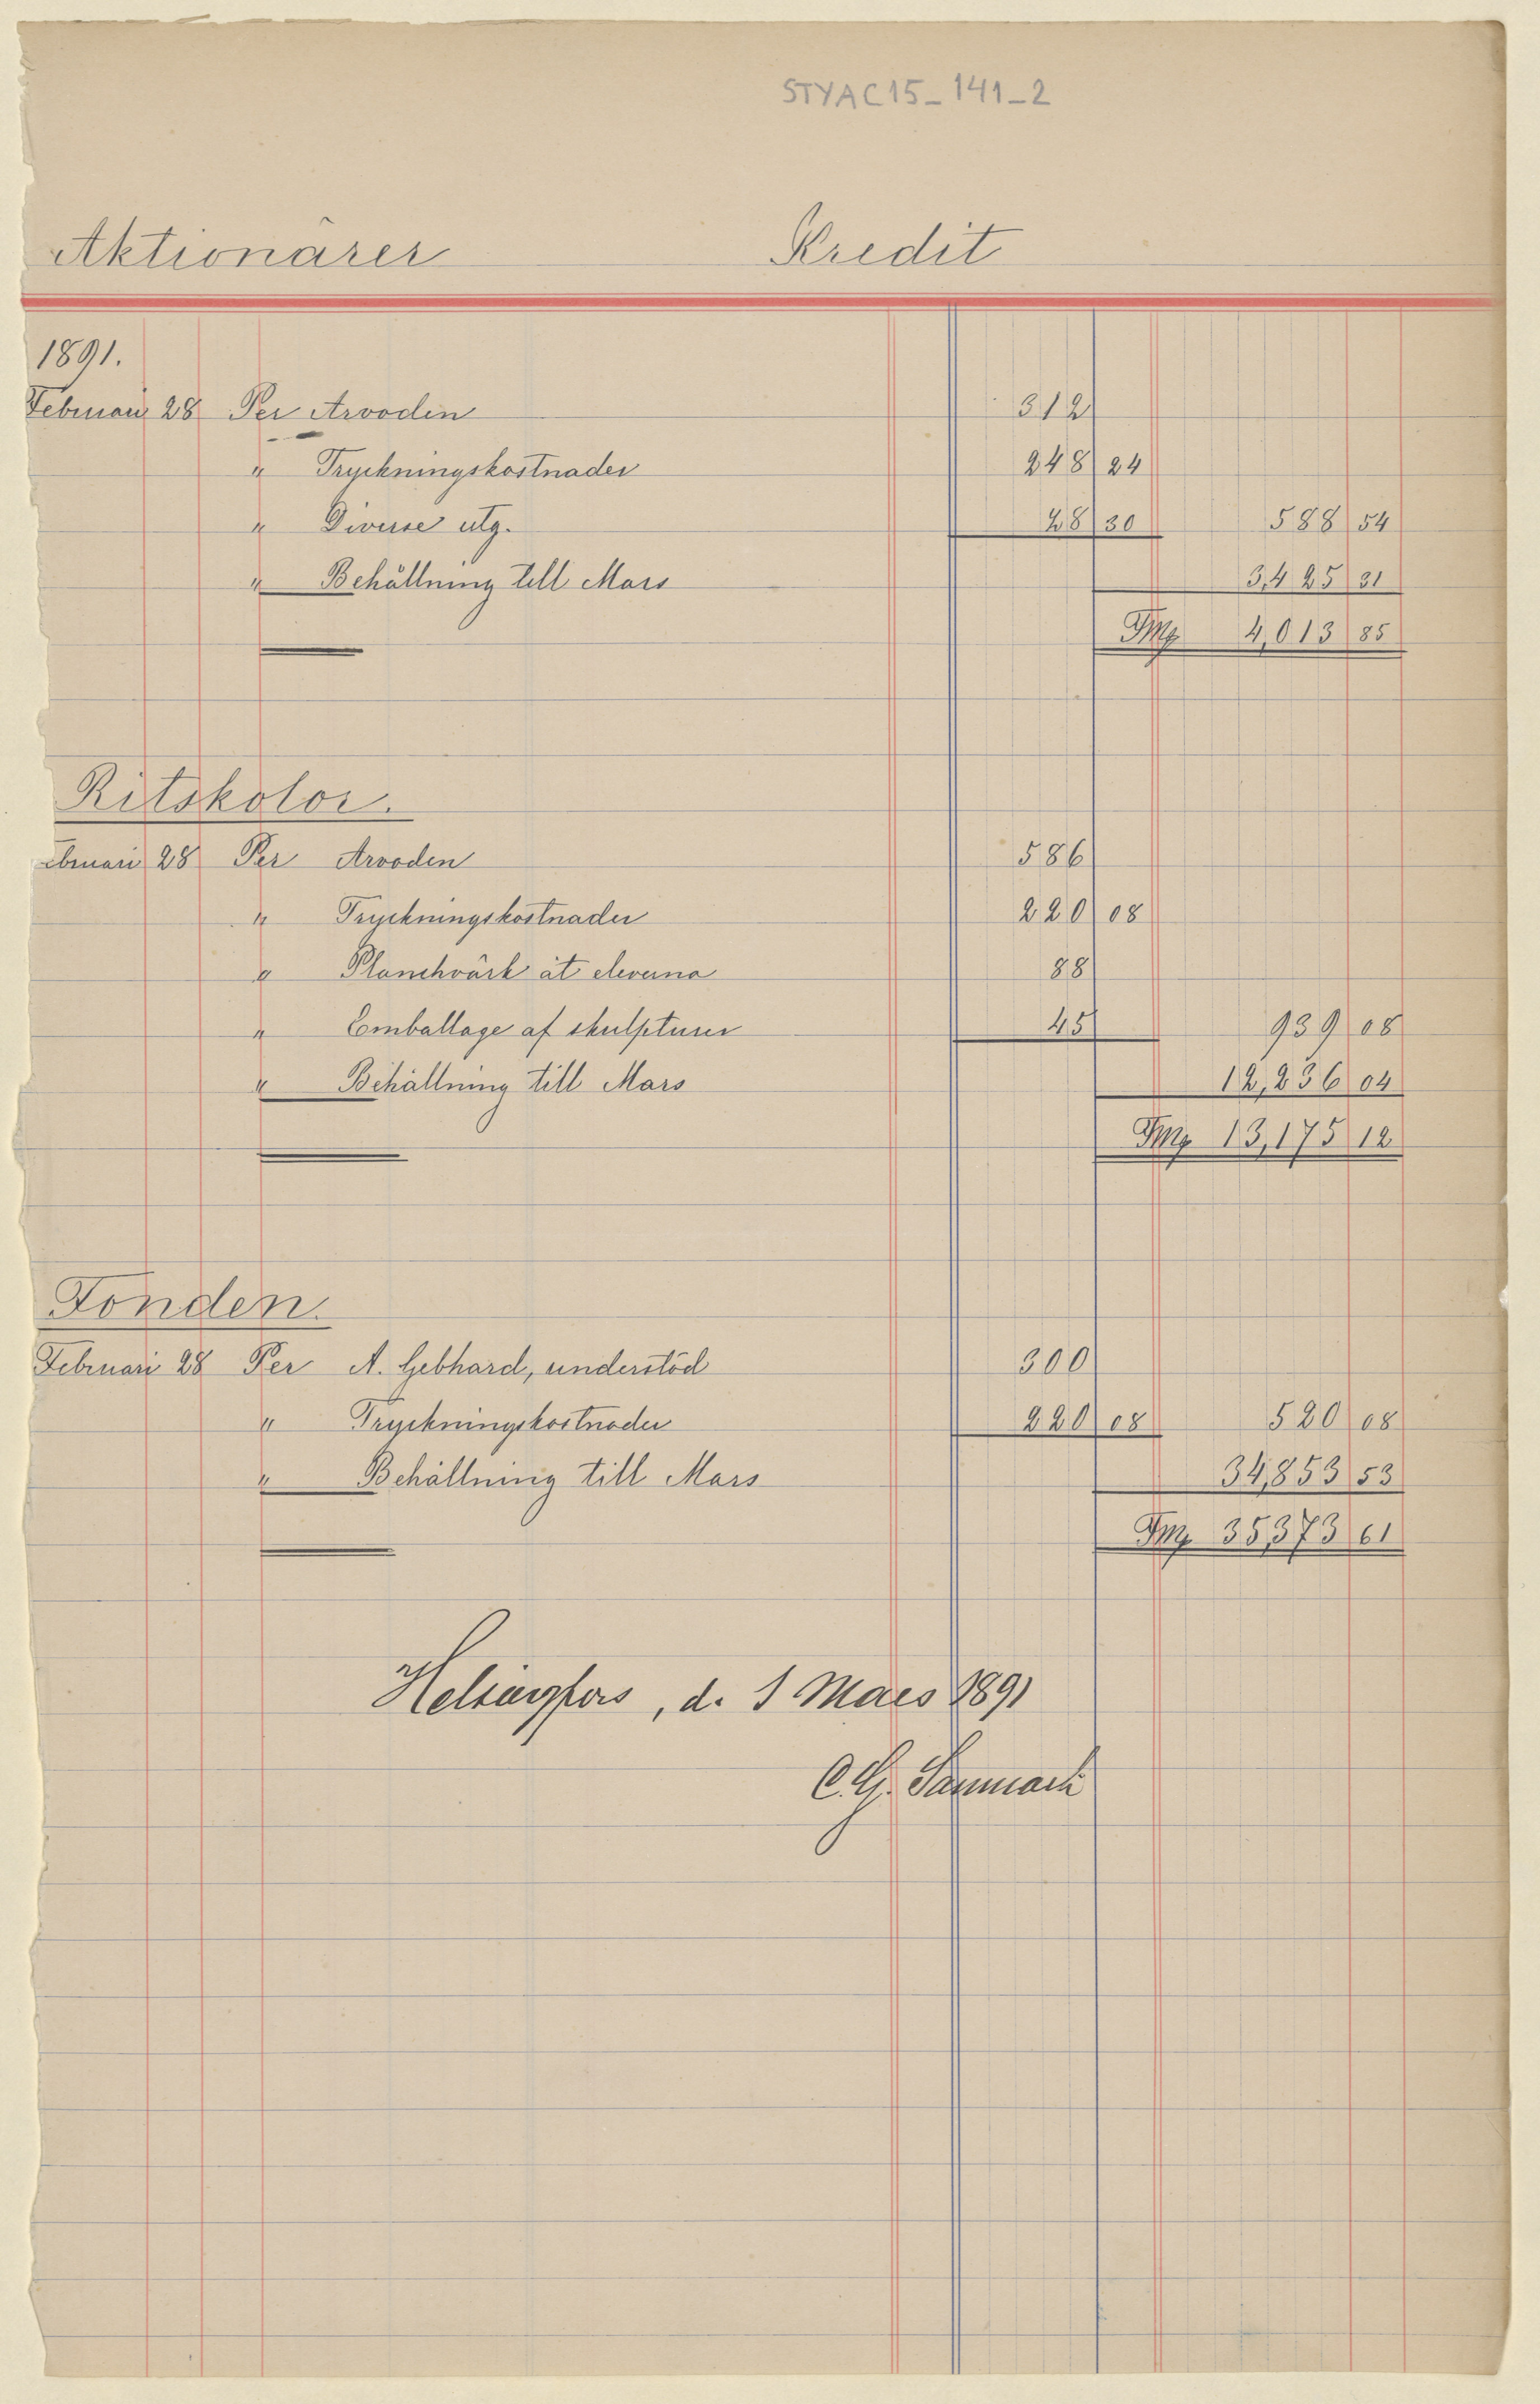 STYAC15_141_2
Aktionärer Kredit
1891.
Februari 28 Per Arvoden 312
" Tryckningskostnader 248 24
" Diverse utg. 28 30 588 54
" Behållning till Mars 3,425 31
Fmg 4,013 85
Ritskolor.
ebruari 28 Per Arvoden 586
" Tryckningskostnader 220 08
" Planchvärk åt eleverna 88
" Emballage af skulpturer 45 939 08
" Behållning till Mars 12,236 04
Fmg 13,175 12
Fonden.
Februari 28 Per A. Gebhard, understöd 300
" Tryckningskostnader 220 08 520 08
" Behållning till Mars 34,853 53
Fmg 35,373 61
Helsingfors, d. 1 Mars 1891
C. G. Sanmark